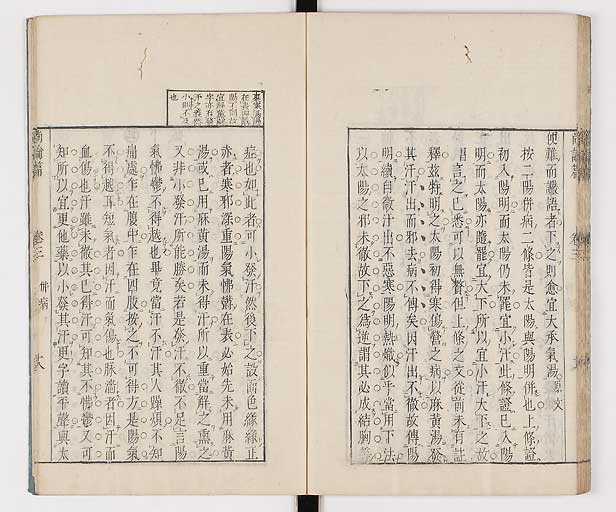 便難而譫語者下之則愈宜大承氣湯原文
按二陽併病二條皆是太陽與陽明併也上條證
初入陽明而太陽仍未罷宜小汗此條證已入陽
明而太陽亦隨罷宜大下所以宜小汗大下之故
言之已悉可以無贅但上條之文從前未有註
釋茲特明之太陽初得寒傷營之病以麻黃湯發
其汗汗出而邪去病不傳矣因汗出不徹故傳陽
明續自微汗出不惡寒陽明熱熾似乎當用下法
以太陽之邪未徹故下之為逆謂其必成結胸等
症也如此者可小發汗然後下之設面色緣緣正
赤者寒邪深重陽氣怫鬱在表必始先未用麻黃
湯或已用麻黃湯而未得汗所以重當解之熏之
又非小發汗所能勝矣若是發汗不徹不足言陽
氣怫鬱不得越也畢竟當汗不汗其人躁煩不知
痛處乍在腹中乍在四肢按之不可得方是陽氣
不得越耳短氣者因汗而氣傷也脉濇者因汗而
血傷也汗雖未徹其已得汗可知其不怫鬱又可
知所以宜更他藥以小發其汗更字讀平聲與太
尚論篇
卷三
併病